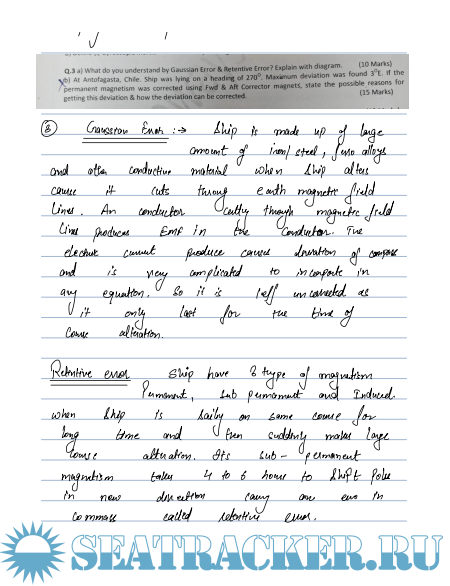 Q.3 a) What do you understand by Gaussian Error & Retentive Error? Explain with diagram. (10 Marks)
b) At Antofagasta, Chile. Ship was lying on a heading of 270°. Maximum deviation was found 3°E. If the
permanent magnetism was corrected using Fwd & Aft Corrector magnets, state the possible reasons for
getting this deviation & how the deviation can be corrected. (15 Marks)
③ Gaussian Error :→ Ship is made up of large
amount of iron/steel, ferro alloys
and other conductive material when Ship alters
cause it cuts throug earth magnetic field
lines. An conductor cutting through magnetic field
lines produces Emf in the conductor. The
electric current produce causes deviation of compass
and is very complicated to incorporte in
any equation. So it is left uncorrected as
it only last for the time of
Course alteration.
Retentive error Ship have 3 type of magnetism
Permanent, Sub permanent and Induced.
when Ship is saily on same course for
long time and then suddenly makes large
course altration. Its Sub - permanent
magnetism takes 4 to 6 hours to Shift Poles
in new direction carry one erro in
commass called retentive error.
SEATRACKER.RU